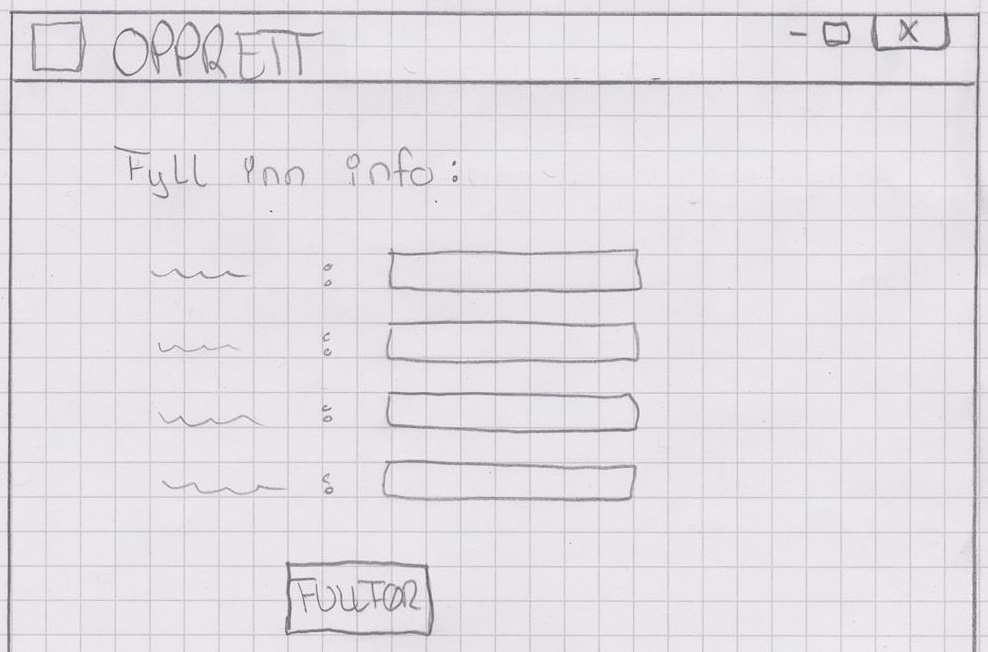 OPPRETT
X
Fyll inn info:
:
:
:
:
FULLFØR